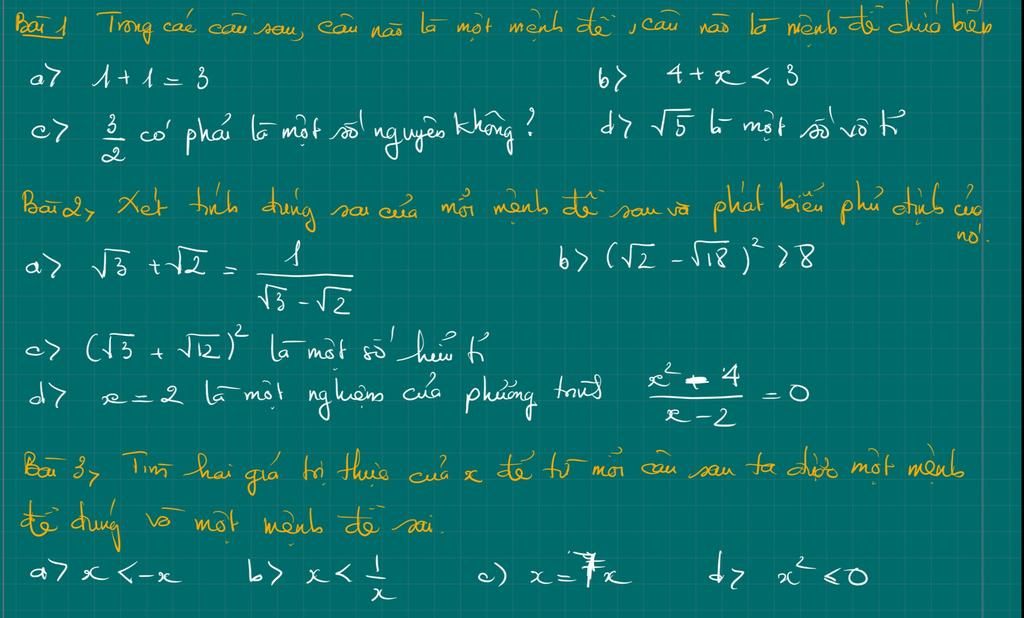 Bài 1 Trong các câu sau, câu nào là một mệnh đề, câu nào là mệnh đề chứa biến
a> 1 + 1 = 3 b> 4 + x < 3
c> 3/2 có phải là một số nguyên không? d> √5 là một số vô tỉ
Bài 2, Xét tính đúng sai của mỗi mệnh đề sau và phát biểu phủ định của
nó.
a> √3 + √2 = 1/(√3 - √2) b> (√2 - √18)² > 8
c> (√3 + √12)² là một số hữu tỉ
d> x = 2 là một nghiệm của phương trình (x² - 4)/(x - 2) = 0
Bài 3, Tìm hai giá trị thực của x để từ mỗi câu sau ta được một mệnh
đề đúng và một mệnh đề sai.
a> x < -x b> x < 1/x c) x = 7x d> x² ≤ 0